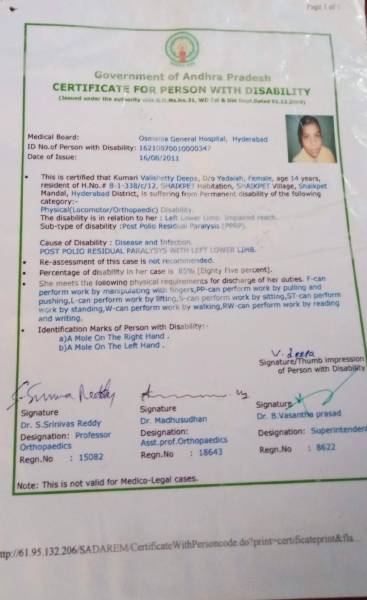 Page 1 of 1
Government of Andhra Pradesh
CERTIFICATE FOR PERSON WITH DISABILITY
(Issued under the authority vide G.O.Ms.No.31, WD CW & DW Dept.Dated 01.12.2009)
Medical Board: Osmania General Hospital, Hyderabad
ID No.of Person with Disability: 16210070010000347
Date of Issue: 16/08/2011
This is certified that Kumari Valishetty Deepa, D/o Yedaiah, Female, age 14 years,
resident of H.No.# 8-1-338/c/12, SHAIKPET Habitation, SHAIKPET Village, Shaikpet
Mandal, Hyderabad District, is suffering from Permanent disability of the following
category:-
Physical(Locomotor/Orthopaedic) Disability.
The disability is in relation to her : Left Lower Limb. Impaired reach.
Sub-type of disability :Post Polio Residual Paralysis (PPRP).
Cause of Disability : Disease and Infection
POST POLIO RESIDUAL PARALYSYS WITH LEFT LOWER LIMB.
Re-assessment of this case is not recommended.
Percentage of disability in her case is 85% [Eighty Five percent].
She meets the following physical requirements for discharge of her duties. F-can
perform work by manipulating with fingers,PP-can perform work by pulling and
pushing,L-can perform work by lifting,S-can perform work by sitting,ST-can perform
work by standing,W-can perform work by walking,RW-can perform work by reading
and writing.
Identification Marks of Person with Disability:-
a)A Mole On The Right Hand .
b)A Mole On The Left Hand .
V. Deepa
Signature/Thumb impression
of Person with Disability
Signature Signature Signature
Dr. S.Srinivas Reddy Dr. Madhusudhan Dr. B.Vasantha prasad
Designation: Professor Designation: Designation: Superintendent
Orthopaedics Asst.prof.Orthopaedics
Regn.No : 15082 Regn.No : 18643 Regn.No : 8622
Note: This is not valid for Medico-Legal cases.
ttp://61.95.132.206/SADAREM/CertificateWithPersoncode.do?print=certificateprint&fla...